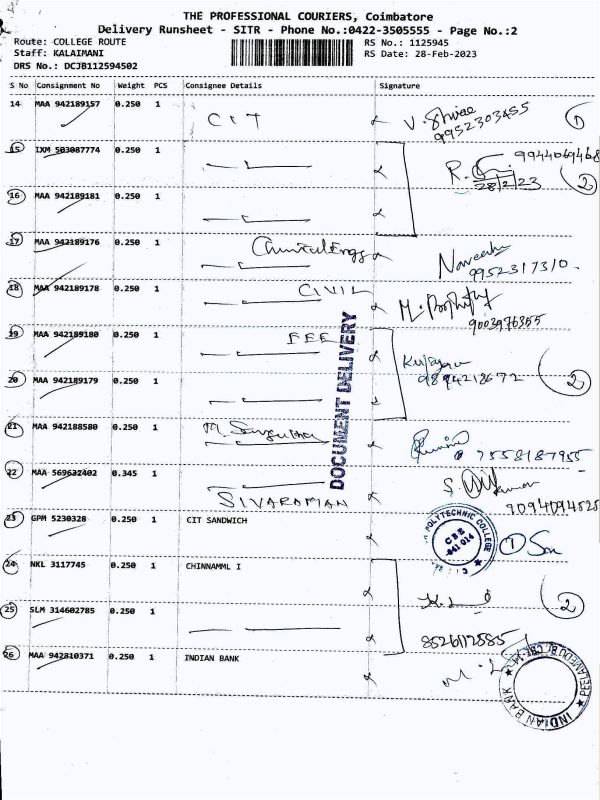 THE PROFESSIONAL COURIERS, Coimbatore
Delivery Runsheet - SITR - Phone No.:0422-3505555 - Page No.:2
Route: COLLEGE ROUTE
RS No.: 1125945
Staff: KALAIMANI
RS Date: 28-Feb-2023
DRS No.: DCJB112594502
S No Consignment No Weight PCS Consignee Details Signature
14 MAA 942189157 0.250 1 CIT
9952303455 1
15 IXM 503087774 0.250 1
9944069468
28/2/23 2
16 MAA 942189181 0.250 1
17 MAA 942189176 0.250 1
9952317310.
18 MAA 942189178 0.250 1 CIVIL
9003976355
19 MAA 942189180 0.250 1 EEE
20 MAA 942189179 0.250 1
9894218672 2
21 MAA 942188580 0.250 1
7558187955
22 MAA 569632402 0.345 1
SIVARAMAN
7094094525
23 GPM 5230328 0.250 1 CIT SANDWICH
1
24 NKL 3117745 0.250 1 CHINNAMML I
2
25 SLM 314602785 0.250 1
26 MAA 942810371 0.250 1 INDIAN BANK
DOCUMENT DELIVERY
POLYTECHNIC COLLEGE
CBE
641 014
INDIAN BANK